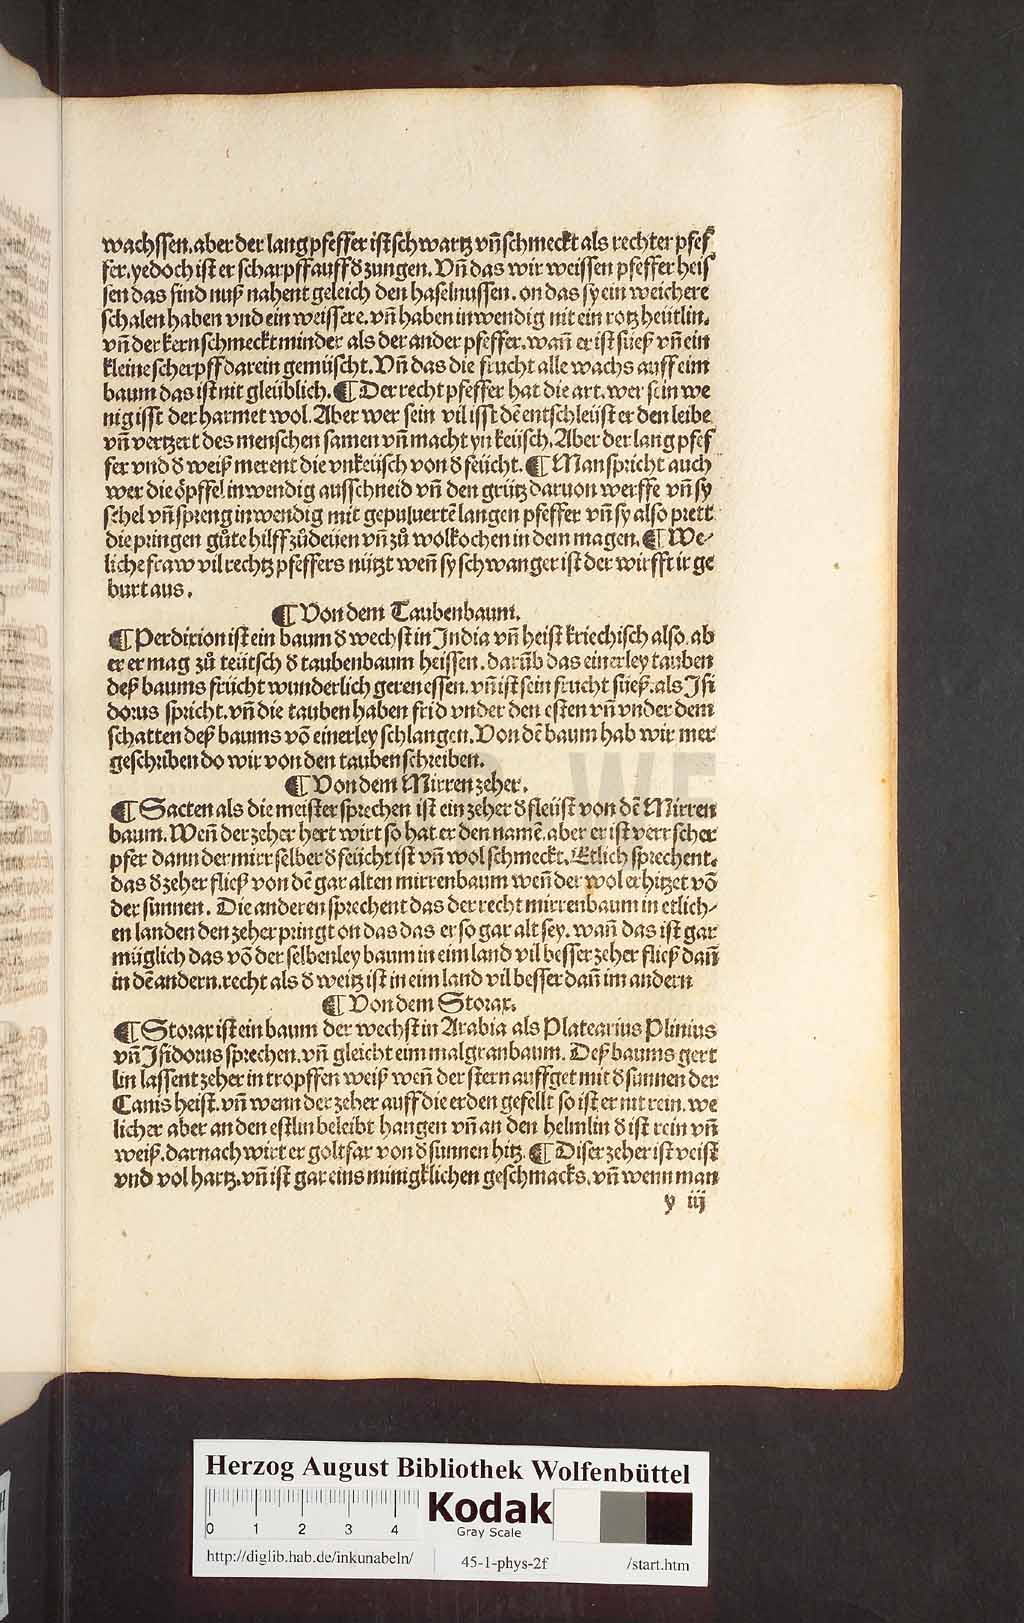 wachssen. aber der lang pfeffer ist schwartz vñ schmeckt als rechter pfef
fer. yedoch ist er scharpff auff ď zungen. Vñ das wir weissen pfeffer heis
sen das sind nuß nahent geleich den haselnussen. on das sy ein weichere
schalen haben vnd ein weissere. vñ haben inwendig nit ein rotz heütlin.
vñ der kern schmeckt minder als der ander pfeffer. wañ er ist süeß vñ ein
kleine scherpff darein gemüscht. Vñ das die frucht alle wachs auff eim
baum das ist nit gleüblich. ¶ Der recht pfeffer hat die art. wer sein we
nig isst der harmet wol. Aber wer sein vil isst dē entschleüst er den leibe
vñ vertzert des menschen samen vñ macht yn keüsch. Aber der lang pfef
fer vnd ď weiß merent die vnkeüsch von ď feücht. ¶ Man spricht auch
wer die öpffel inwendig ausschneid vñ den grütz daruon werffe vñ sy
schel vñ spreng inwendig mit gepuluertē langen pfeffer vñ sy also prett
die pringen gůte hilff zů deüen vñ zů wolkochen in dem magen. ¶ We⸗
liche fraw vil rechtz pfeffers nützt weñ sy schwanger ist der wirfft ir ge
burt aus.
¶ Von dem Taubenbaum.
¶ Perdixion ist ein baum ď wechst in India vñ heist kriechisch also. ab
er er mag zů teütsch ď taubenbaum heissen. darūb das einerley tauben
deß baums frücht wunderlich geren essen. vñ ist sein frucht süeß. als Isi
dorus spricht. vñ die tauben haben frid vnder den esten vñ vnder dem
schatten deß baums võ einerley schlangen. Von dē baum hab wir mer
geschriben do wir von den tauben schreiben.
¶ Von dem Mirren zeher.
¶ Sacten als die meister sprechen ist ein zeher ď fleüst von dē Mirren
baum. Weñ der zeher hert wirt so hat er den namē. aber er ist verr scher
pfer dann der mirr selber ď feücht ist vñ wol schmeckt. Etlich sprechent.
das ď zeher fließ von dē gar alten mirrenbaum weñ der wol erhitzet võ
der sunnen. Die anderen sprechent das der recht mirrenbaum in etlich⸗
en landen den zeher pringt on das das er so gar alt sey. wañ das ist gar
müglich das võ der selbenley baum in eim land vil besser zeher fließ dañ
in dē andern. recht als ď weitz ist in eim land vil besser dañ im andern
¶ Von dem Storax.
¶ Storax ist ein baum der wechst in Arabia als Platearius Plinius
vñ Isidorus sprechen. vñ gleicht eim malgranbaum. Deß baums gert
lin lassent zeher in tropffen weiß weñ der stern auffget mit ď sunnen der
Canis heist. vñ wenn der zeher auff die erden gefellt so ist er nit rein. we
licher aber an den estlin beleibt hangen vñ an den helmlin ď ist rein vñ
weiß. darnach wirt er goltfar von ď sunnen hitz. ¶ Diser zeher ist veist
vnd vol hartz. vñ ist gar eins minigklichen geschmacks. vñ wenn man
y iij
Herzog August Bibliothek Wolfenbüttel
0 1 2 3 4
Kodak
Gray Scale
http://diglib.hab.de/inkunabeln/ 45-1-phys-2f /start.htm